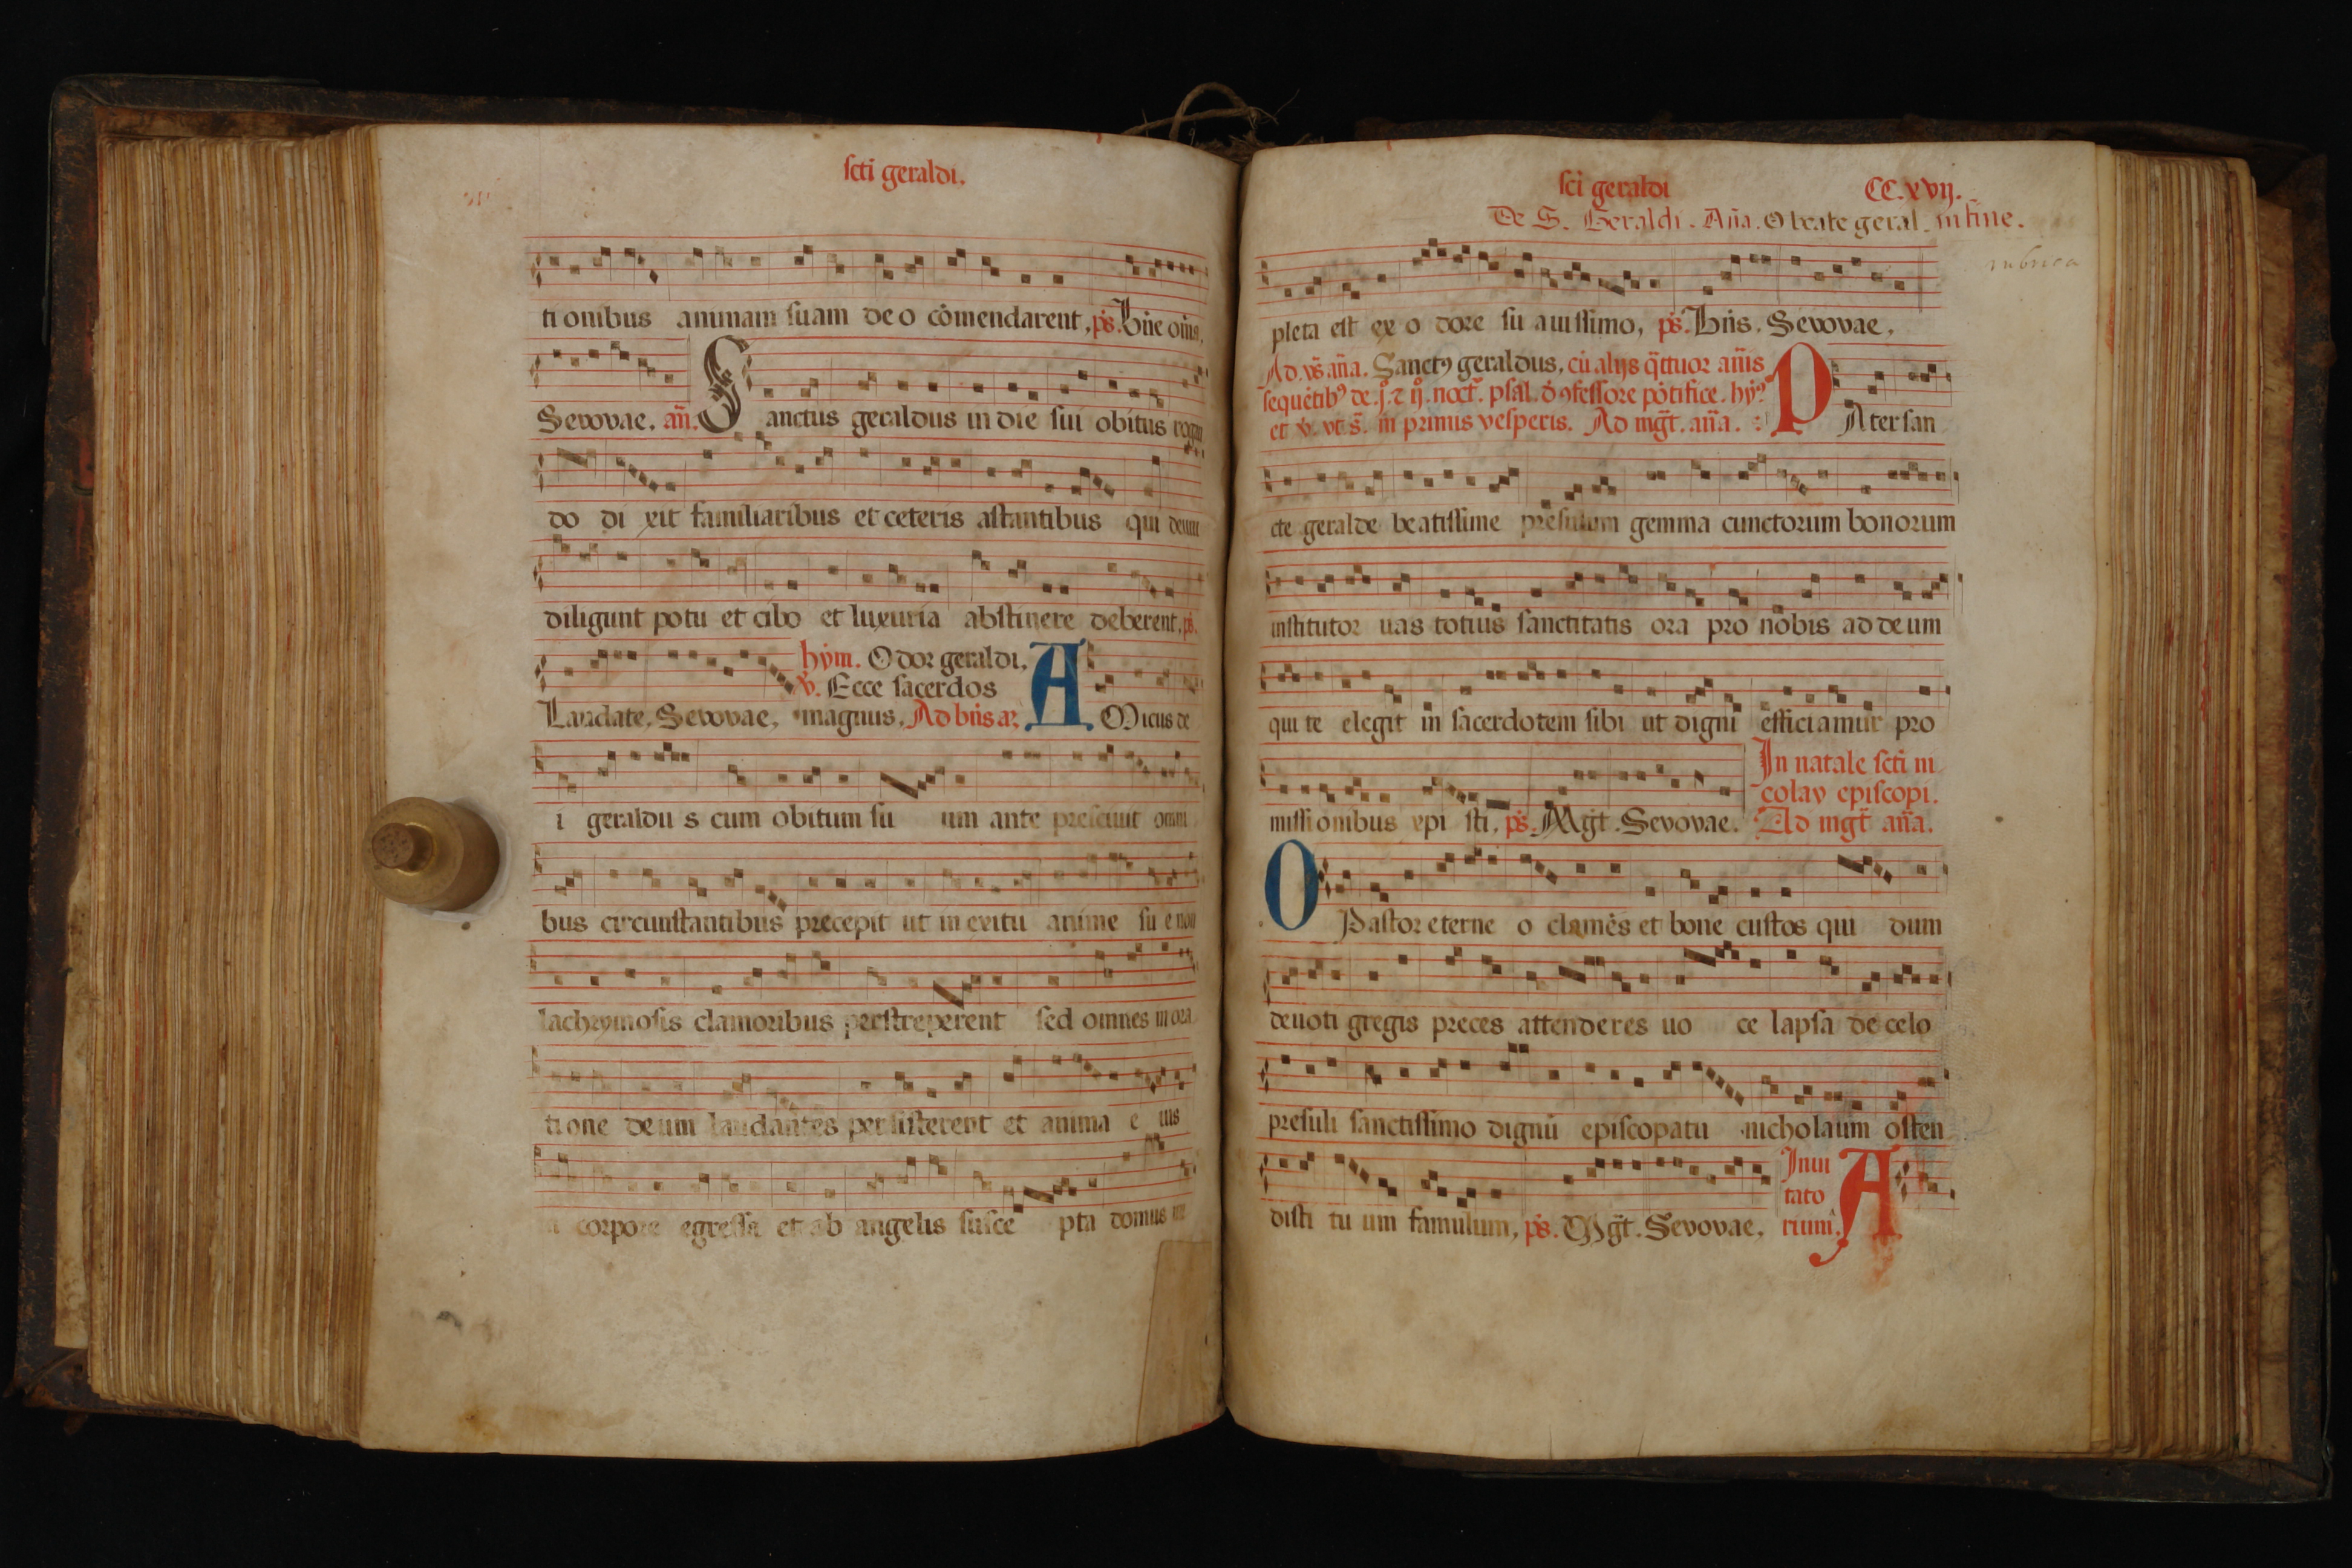 scti geraldi.
ti onibus animam suam de o cōmendarent, ps. Bn̄e om̄s.
Sevovae. an̄. Sanctus geraldus in die sui obitus rogan
do di xit familiaribus et ceteris astantibus qui deum
diligunt potu et cibo et luxuria abstinere deberent. ps.
hym. Odor geraldi.
v. Ecce sacerdos
Laudate. Sevovae, magnus. Ad bn̄s an̄. AMicus de
i geraldu s cum obitum su um ante presciuit omni
bus circunstantibus precepit ut in exitu anime su e non
lachrymosis clamoribus perstreperent sed omnes in ora
tione deum laudantes persisterent et anima e ius
a corpore egressa et ab angelis susce pta domus
sci geraldi CC.xvij.
De S. Geraldi. An̄a. O beate geral. in fine.
rubrica
pleta est ex o dore su auissimo, ps. Bn̄s. Sevovae,
Ad vs an̄a. Sanctꝰ geraldus, cū alijs q̄ttuor an̄is
sequētibꝰ de. j. ⁊ ij. noct. psal. d ꝯfessore pōtifice. hyꝰ
et v. vt s. in primis vesperis. Ad mḡt. an̄a. PAter san
cte geralde beatissime presulum gemma cunctorum bonorum
institutor uas totius sanctitatis ora pro nobis ad deum
qui te elegit in sacerdotem sibi ut digni efficiamur pro
missionibus xpi sti. ps. Mḡt. Sevovae.
In natale scti ni
colay episcopi.
Ad mḡt an̄a.
O Pastor eterne o clemēs et bone custos qui dum
deuoti gregis preces attenderes uo ce lapsa de celo
presuli sanctissimo dignū episcopatu nicholaum osten
disti tu um famulum, ps. Mḡt. Sevovae,
Inui
tato
rium. A